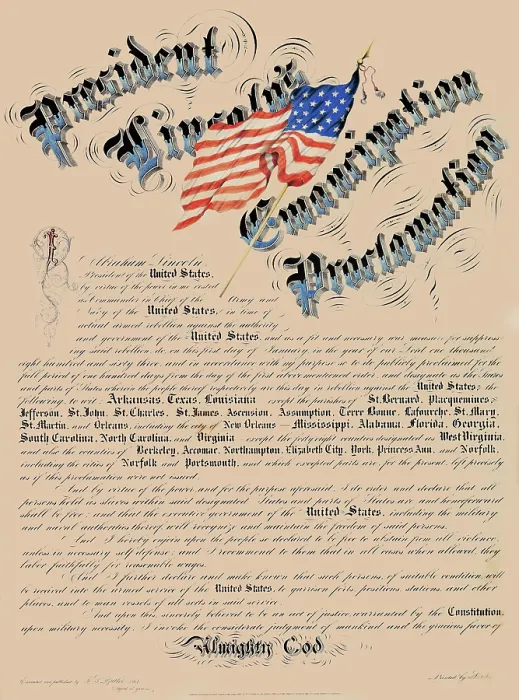 President
Lincoln's
Emancipation
Proclamation
I, Abraham Lincoln
President of the United States,
by virtue of the power in me vested
as Commander in Chief of the Army and
Navy of the United States, in time of
actual armed rebellion against the authority
and government of the United States, and as a fit and necessary war measure for suppress
ing said rebellion, do, on this first day of January, in the year of our Lord one thousand
eight hundred and sixty three, and in accordance with my purpose so to do publicly proclaimed for the
full period of one hundred days from the day of the first above mentioned order, and designate as the States
and parts of States wherein the people thereof respectively are this day in rebellion against the United States, the
following, to wit: Arkansas, Texas, Louisiana except the parishes of St. Bernard, Placquemines,
Jefferson, St. John, St. Charles, St. James, Ascension, Assumption, Terre Bonne, Lafourche, St. Mary,
St. Martin, and Orleans, including the city of New Orleans — Mississippi, Alabama, Florida, Georgia,
South Carolina, North Carolina, and Virginia except the forty eight counties designated as West Virginia,
and also the counties of Berkeley, Accomac, Northampton, Elizabeth City, York, Princess Ann, and Norfolk,
including the cities of Norfolk and Portsmouth, and which excepted parts are, for the present, left precisely
as if this proclamation were not issued.
And by virtue of the power, and for the purpose aforesaid, I do order and declare that all
persons held as slaves within said designated States and parts of States are and henceforward
shall be free; and that the executive government of the United States, including the military
and naval authorities thereof, will recognize and maintain the freedom of said persons.
And I hereby enjoin upon the people so declared to be free to abstain from all violence,
unless in necessary self defense; and I recommend to them that in all cases when allowed, they
labor faithfully for reasonable wages.
And I further declare and make known that such persons, of suitable condition, will
be received into the armed service of the United States, to garrison forts, positions, stations, and other
places, and to man vessels of all sorts in said service.
And upon this, sincerely believed to be an act of justice, warranted by the Constitution,
upon military necessity, I invoke the considerate judgment of mankind and the gracious favor of
Almighty God
and published by
Printed by